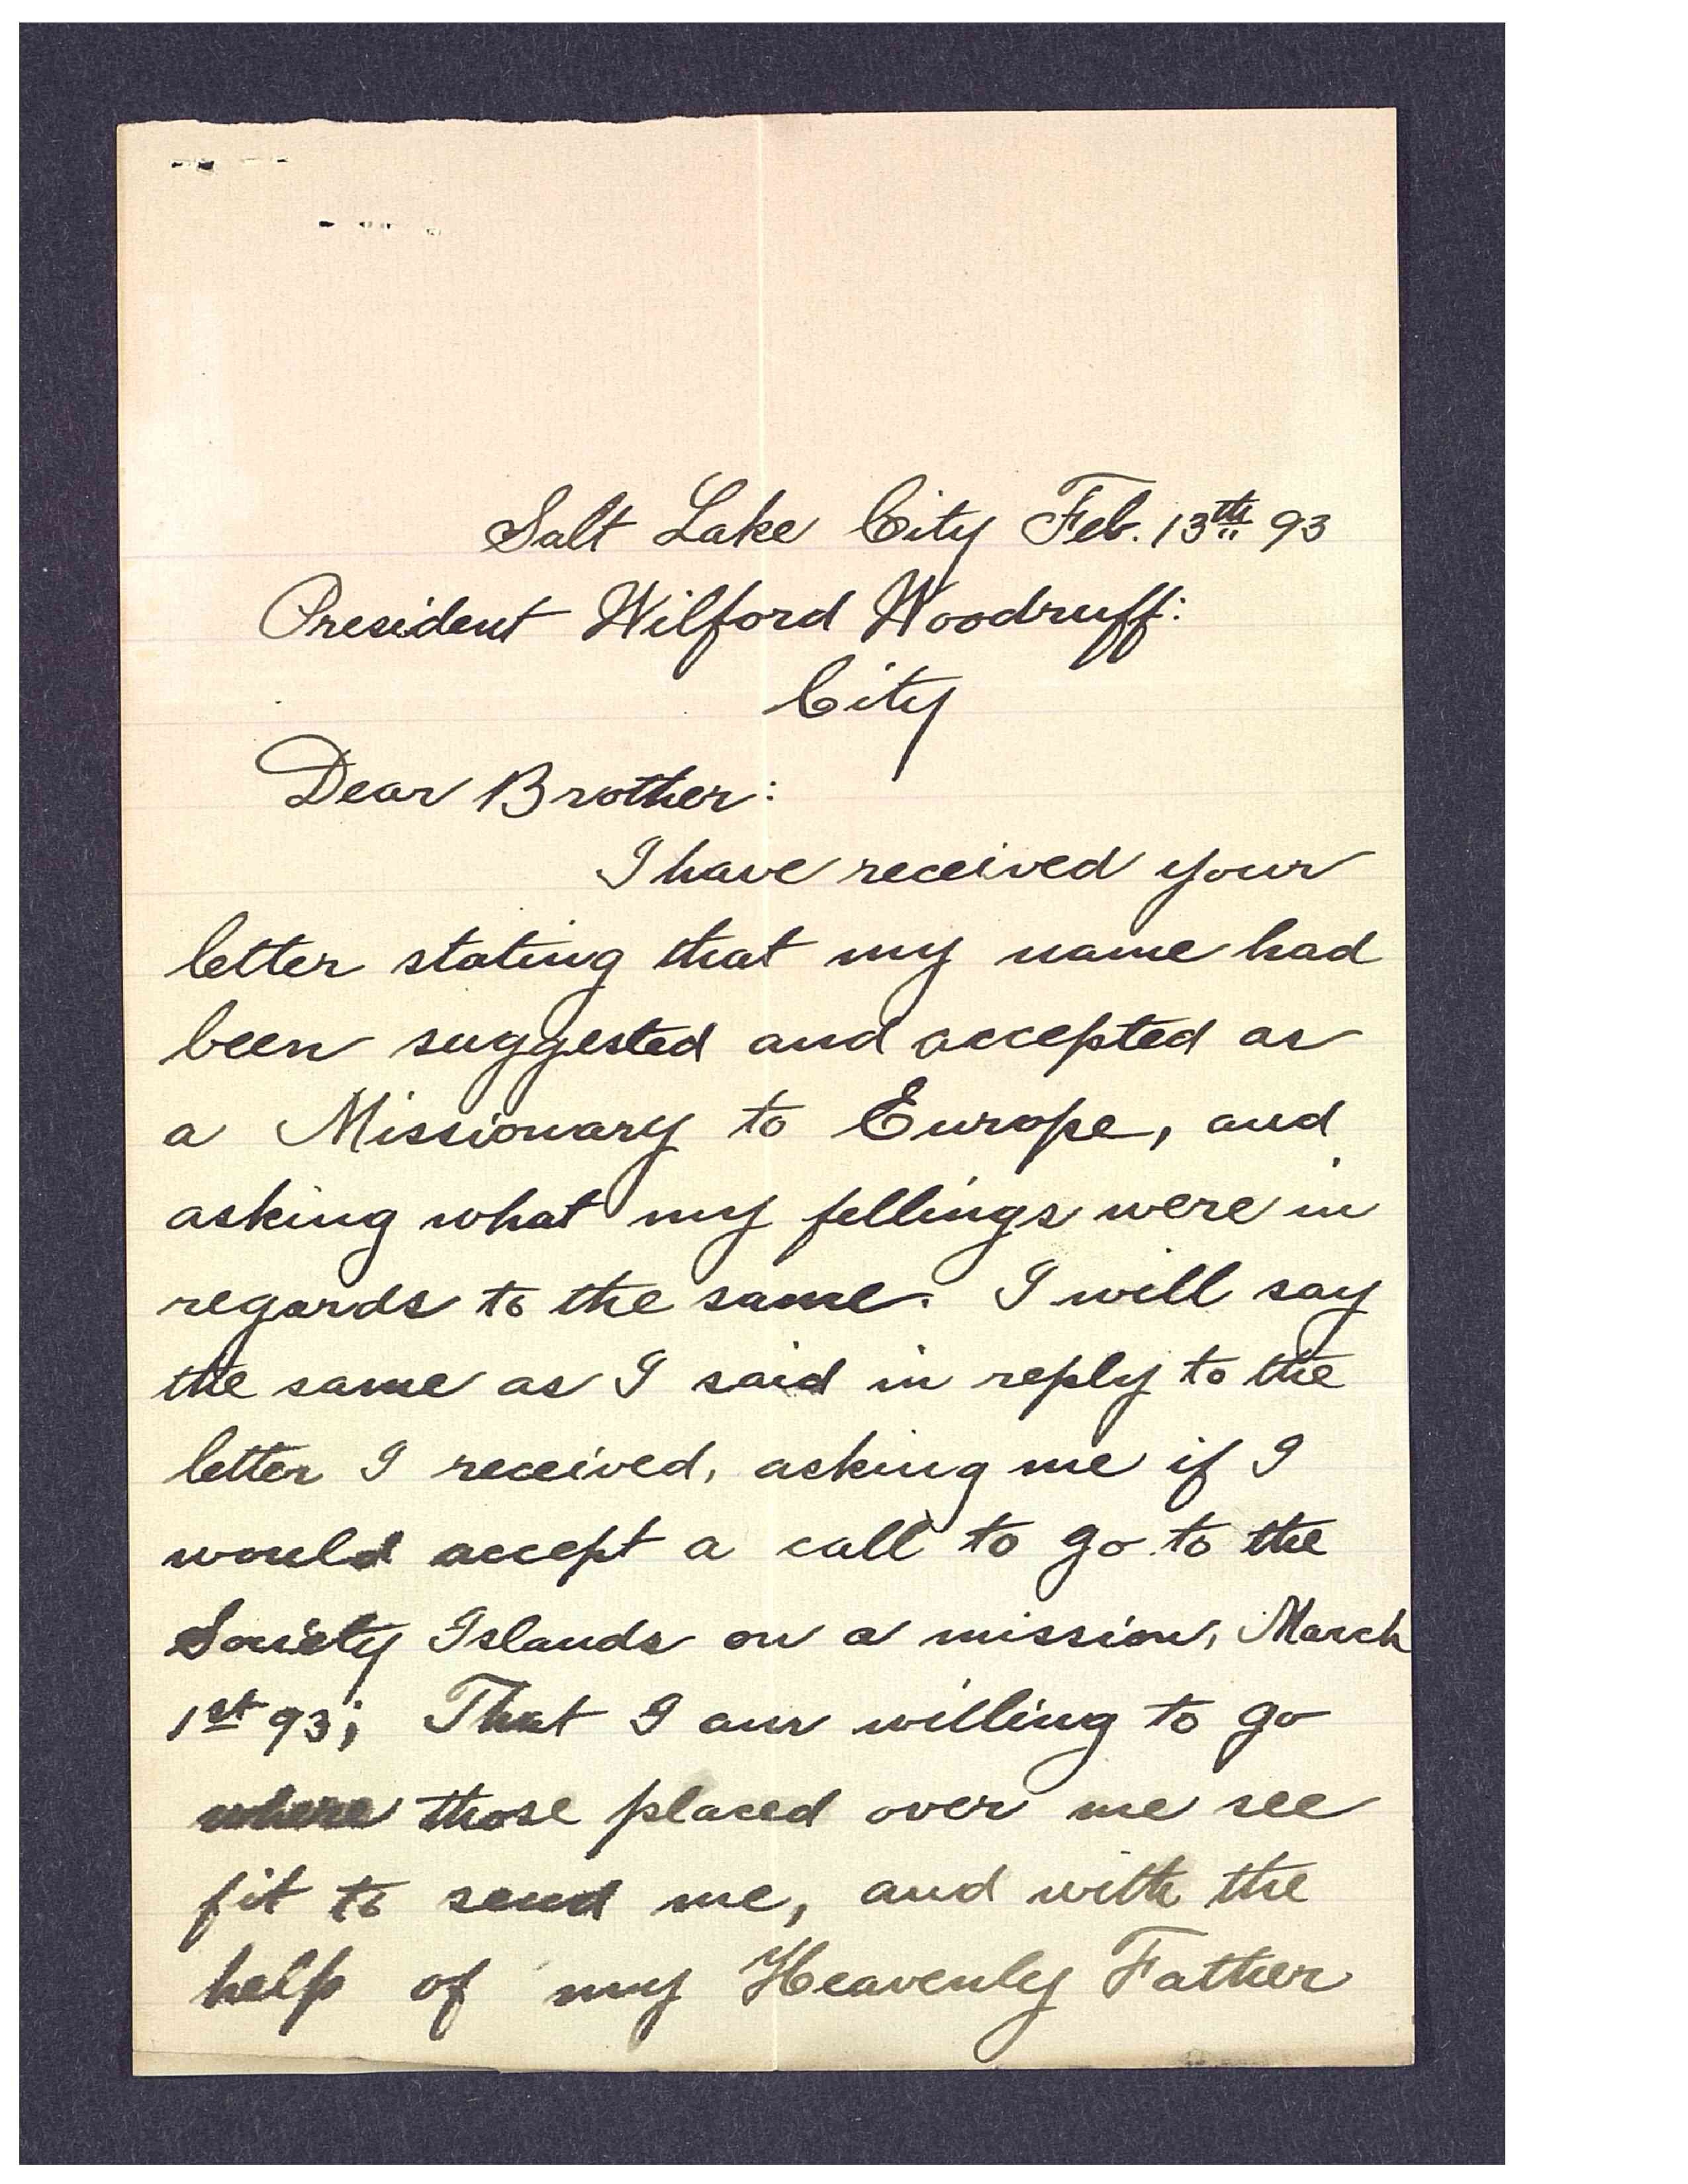 Salt Lake City Feb. 13th 93
President Wilford Woodruff:
City
Dear Brother:
I have received your
letter stating that my name had
been suggested and accepted as
a Missionary to Europe, and
asking what my fellings were in
regards to the same. I will say
the same as I said in reply to the
letter I received, asking me if I
would accept a call to go to the
Society Islands on a mission, March
1st 93; That I am willing to go
where those placed over me see
fit to send me, and with the
help of my Heavenly Father